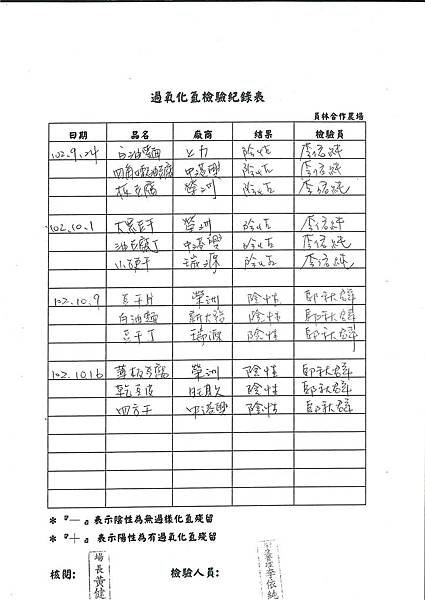 過氧化氫檢驗紀錄表
員林合作農場
日期 品名 廠商 結果 檢驗員
102.9.24 白油麵 上力 陰性 李依純
四角油豆腐 中港興 陰性 李依純
板豆腐 榮洲 陰性 李依純
102.10.1 大黑豆干 榮洲 陰性 李依純
油豆腐丁 中港興 陰性 李依純
小豆干 瑞源 陰性 李依純
102.10.9 豆干片 榮洲 陰性 鄔秋群
白油麵 陰性 鄔秋群
豆干丁 瑞源 陰性 鄔秋群
102.10.16 薄板豆腐 榮洲 陰性 鄔秋群
乾豆皮 旺月久 陰性 鄔秋群
四方干 中港興 陰性 鄔秋群
*『一』表示陰性為無過樣化氫殘留
*『+』表示陽性為有過氧化氫殘留
核閱: 場長黃健 檢驗人員: 李依純